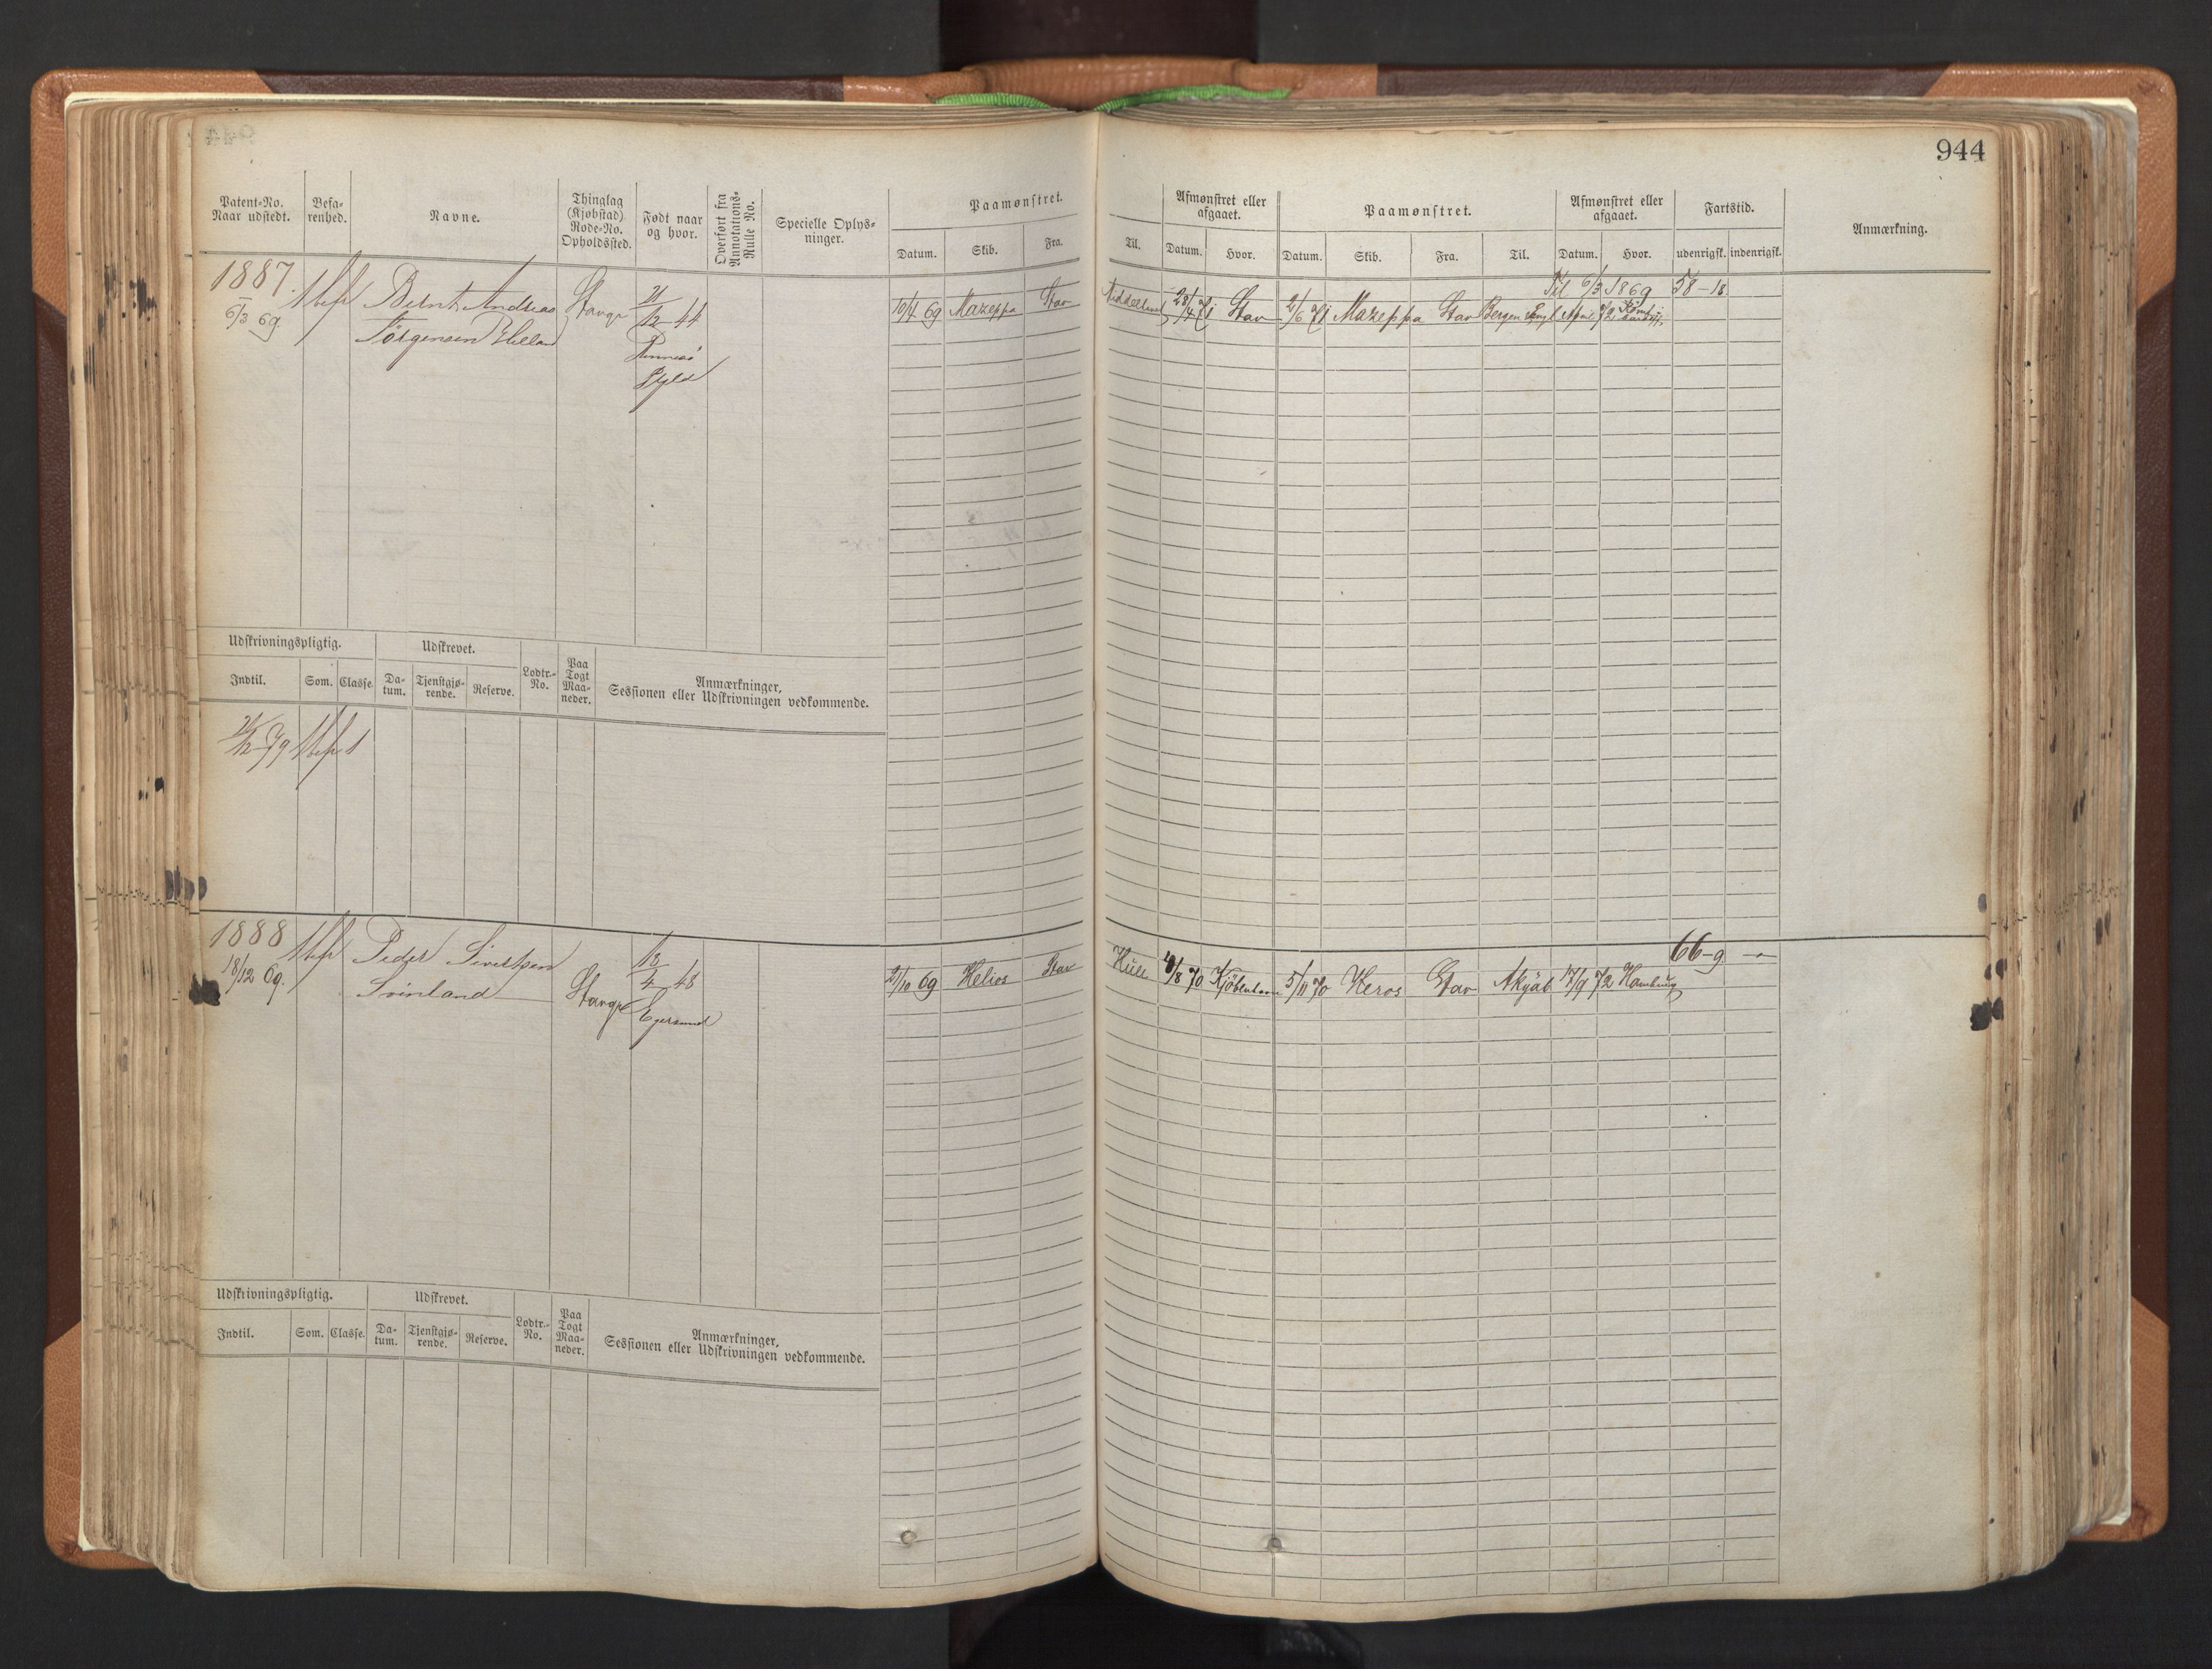 944
Patent-No. Naar udstedt.
Befarenhed.
Navne.
Thinglag (Kjøbstad) Rode-No. Opholdssted.
Født naar og hvor.
Overført fra Annotations-Rulle No.
Specielle Oplysninger.
Paamønstret.
Datum. Skib. Fra. Til.
Afmønstret eller afgaaet.
Datum. Hvor.
Paamønstret.
Datum. Skib. Fra. Til.
Afmønstret eller afgaaet.
Datum. Hvor.
Fartstid.
udenrigsk. indenrigsk.
Anmærkning.
1887. Bernt Andreas Stavgr 21/12 44
6/3 69. Jörgensen
Til 6/3 1869 58-18
10/4 69 Mazeppa Stav 28/4 71 Stav 2/6 71 Mazeppa Stav Bergen April 72
Udskrivningspligtig. Udskrevet. Lodtr.-No. Paa Togt Maaneder. Anmærkninger, Sessionen eller Udskrivningen vedkommende.
Indtil. Som. Classe. Datum. Tjenstgjørende. Reserve.
21/12 79 1
1888 Peder Sivertsen 13/4 48
18/12 69. Svinland Stavgr Egersund
66-9 -
2/10 69 Helios Stav /8 70 Kjöbenhavn 5/11 70 Heros Stav Akyab 17/9 72 Hamburg
Udskrivningspligtig. Udskrevet. Lodtr.-No. Paa Togt Maaneder. Anmærkninger, Sessionen eller Udskrivningen vedkommende.
Indtil. Som. Classe. Datum. Tjenstgjørende. Reserve.